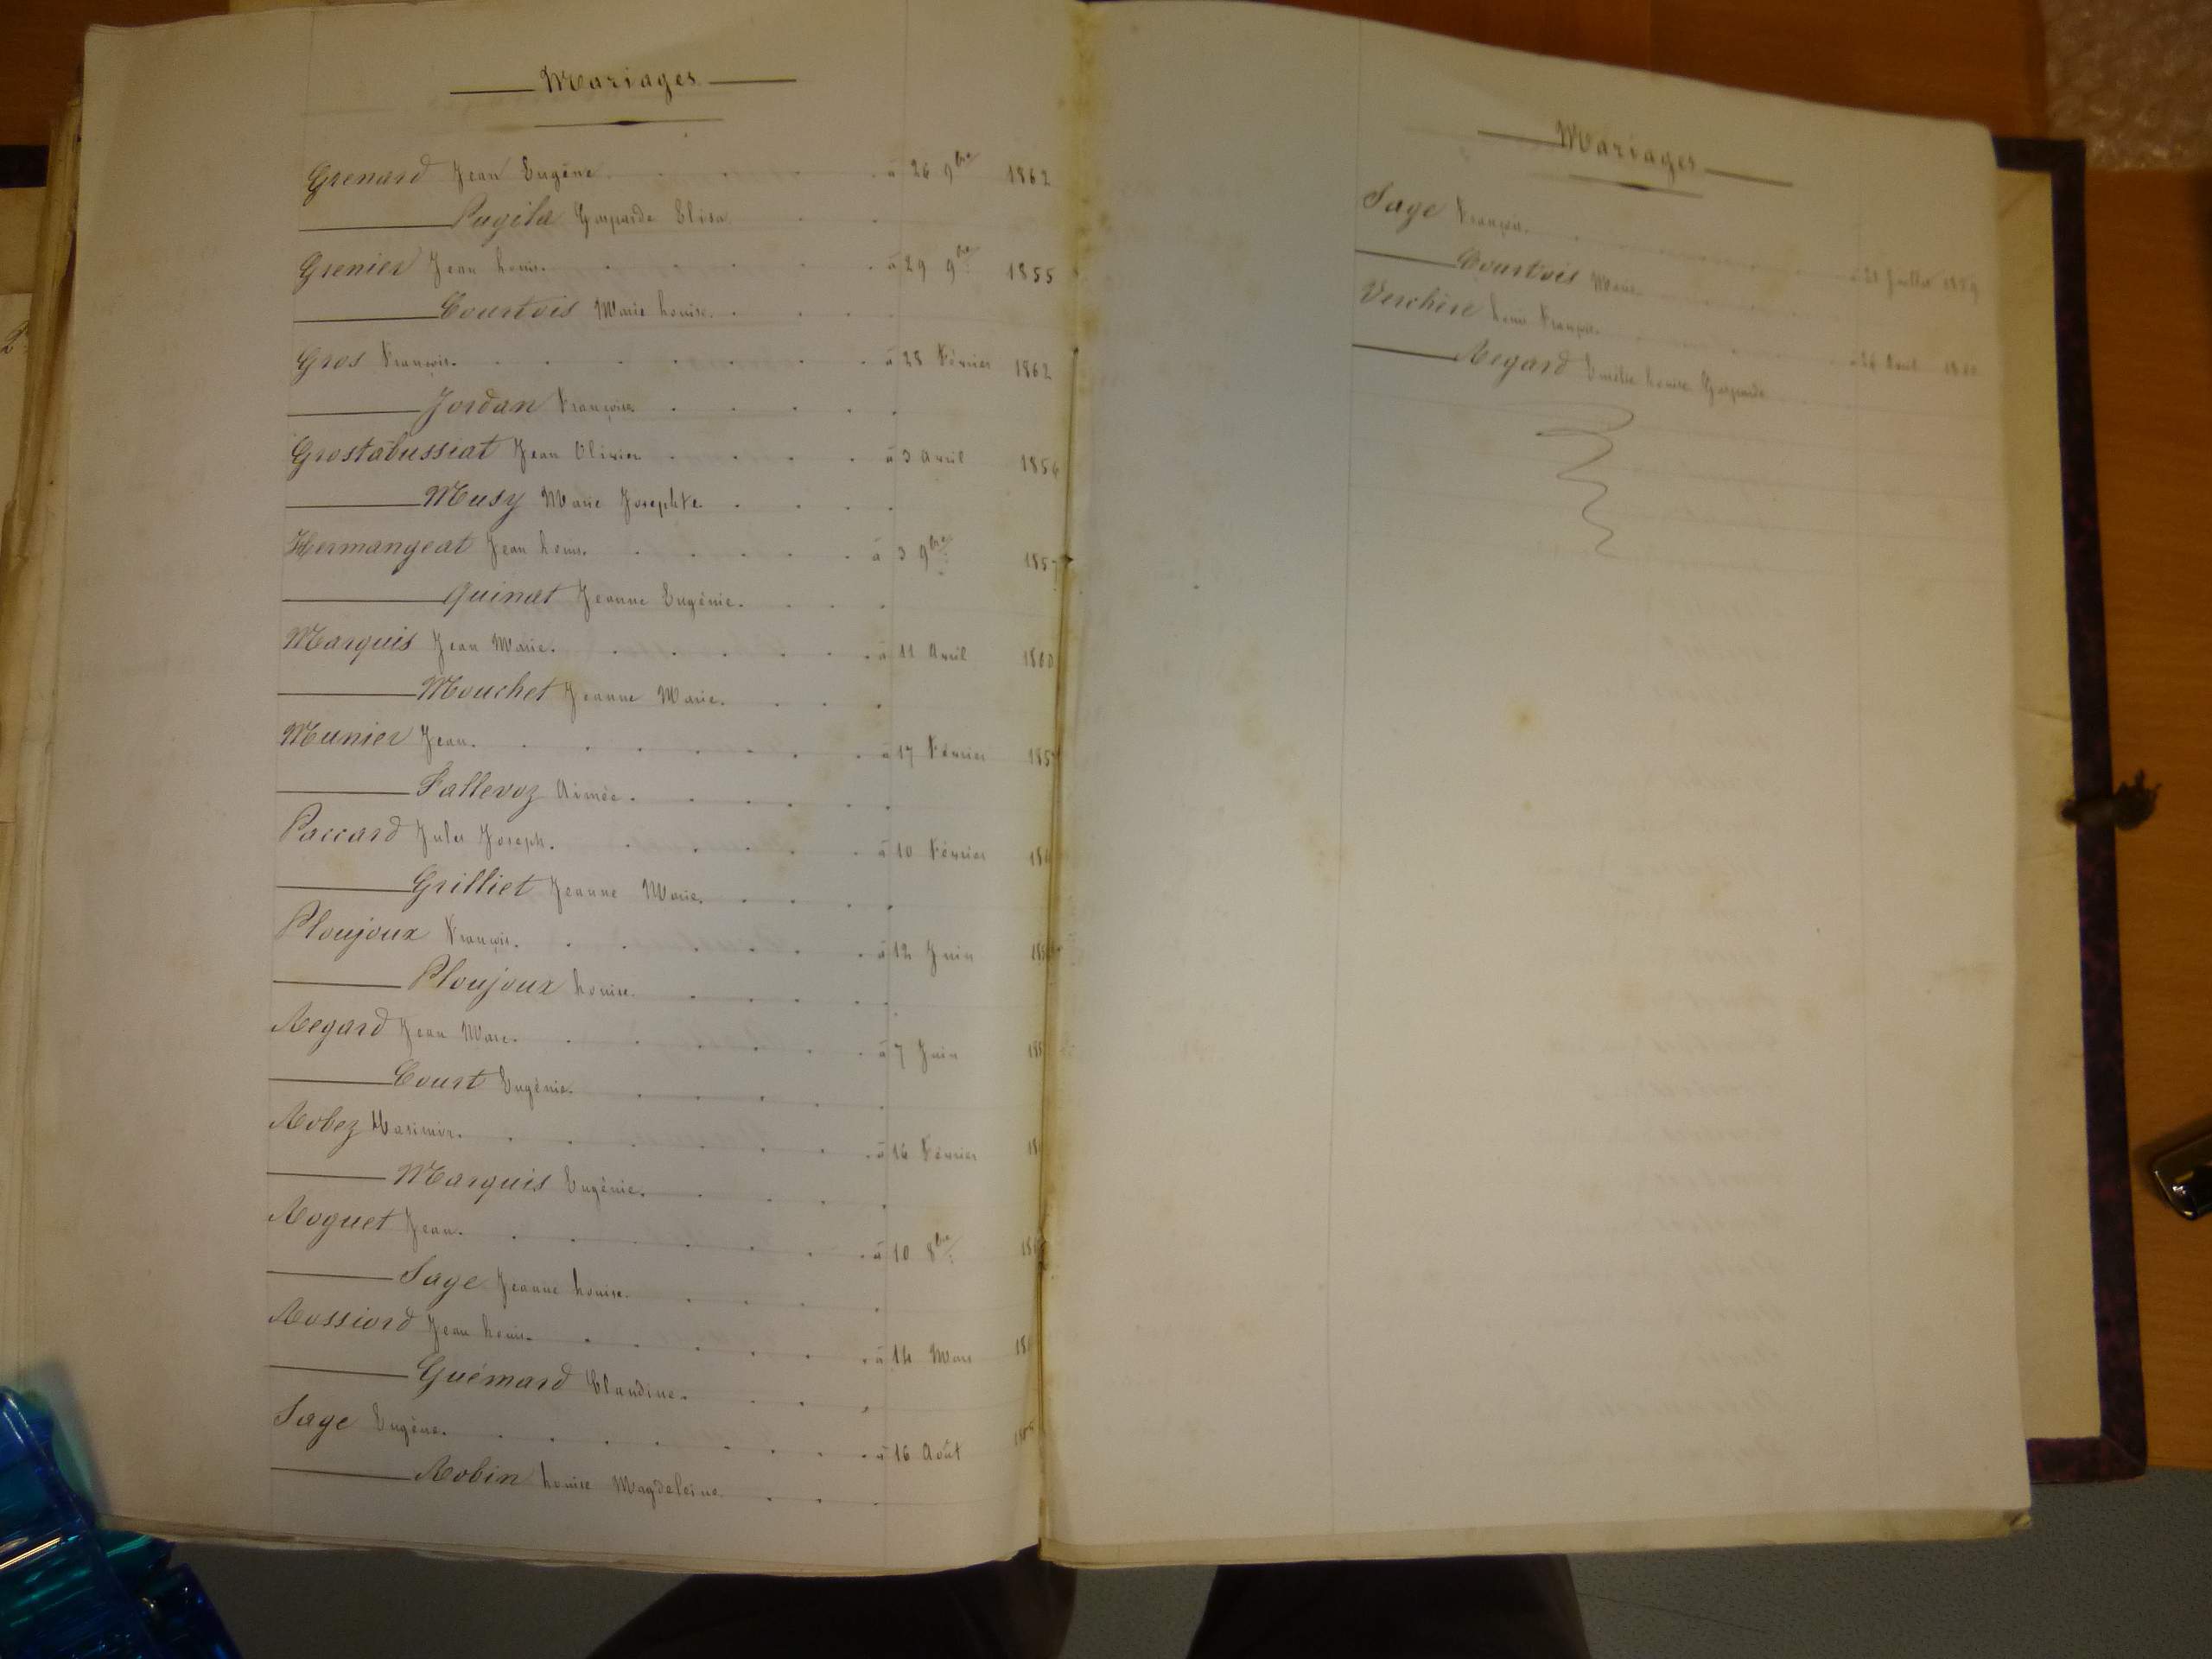 Mariages
Grenard Jean Eugène. à 26 9bre 1862
Pugila Gasparde Elisa
Grenier Jean Louis. à 29 9bre 1855
Courtois Marie Louise.
Gros François. à 28 Février 1862
Jordan Françoise
Grostabussiat Jean Olivier à 3 Avril 1856
Musy Marie Josephte
Hermangeat Jean Louis. à 3 9bre 1857
Quinat Jeanne Eugénie.
Marquis Jean Marie. à 11 Avril 1860
Mouchet Jeanne Marie.
Munier Jean. à 17 Février
Fallevoz Aimée.
Paccard Jules Joseph. à 10 Février
Grilliet Jeanne Marie.
Ploujoux François. à 12 Juin
Ploujoux Louise.
Regard Jean Marc. à 7 Juin
Court Eugénie.
Robez Casimir. à 16 Février
Marquis Eugénie.
Roguet Jean. à 10 8bre
Sage Jeanne Louise.
Rossiord Jean Louis. à 14 Mars
Guémard Claudine.
Sage Eugène. à 16 Août
Robin Louise Magdeleine
Mariages
Sage François. Juillet 1859
Courtois Marie
Verchère Louis François. à 26 Avril
Regard Emélie Louise Gasparde